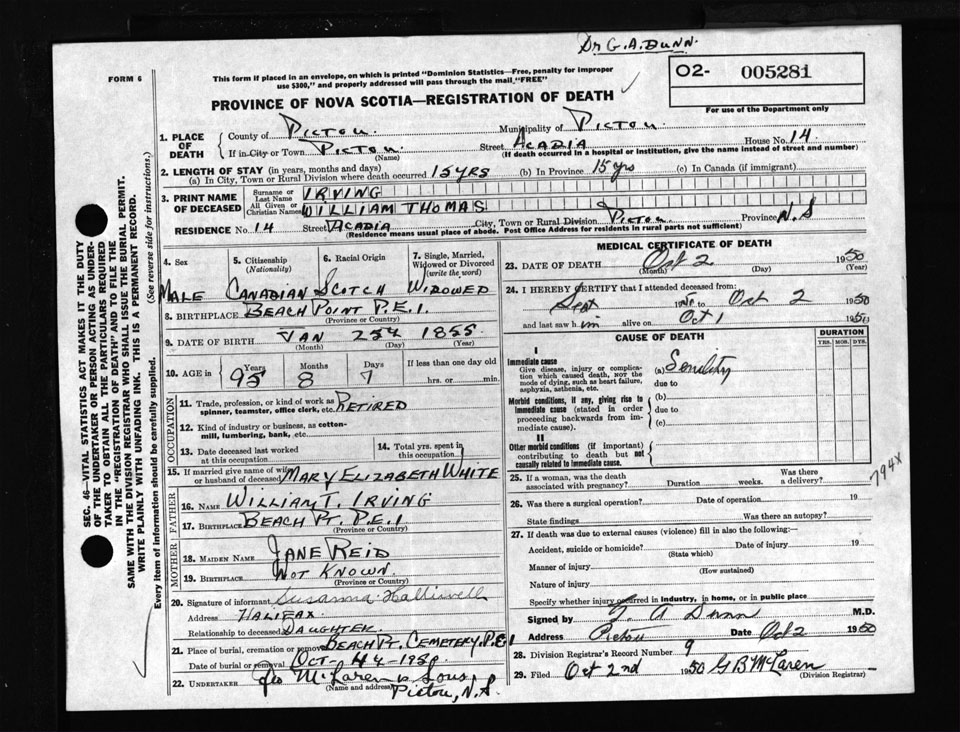 Dr G. A. DUNN.
FORM 6
This form if placed in an envelope, on which is printed "Dominion Statistics—Free, penalty for improper
use $300," and properly addressed will pass through the mail, "FREE"
02- 005281
For use of the Department only
PROVINCE OF NOVA SCOTIA—REGISTRATION OF DEATH
1. PLACE OF DEATH
County of PICTOU. Municipality of PICTOU.
If in City or Town PICTOU. (Name) Street ACADIA House No. 14
(If death occurred in a hospital or institution, give the name instead of street and number)
2. LENGTH OF STAY (in years, months and days)
(a) In City, Town or Rural Division where death occurred 15 YRS (b) In Province 15 yrs (c) In Canada (if immigrant)
3. PRINT NAME OF DECEASED
Surname or Last Name IRVING
All Given or Christian Names WILLIAM THOMAS
RESIDENCE No. 14 Street ACADIA City, Town or Rural Division PICTOU Province N.S
(Residence means usual place of abode. Post Office Address for residents in rural parts not sufficient)
4. Sex MALE
5. Citizenship (Nationality) CANADIAN
6. Racial Origin SCOTCH
7. Single, Married, Widowed or Divorced (write the word) WIDOWED
8. BIRTHPLACE BEACH POINT P.E.I.
(Province or Country)
9. DATE OF BIRTH JAN 25th 1855
(Month) (Day) (Year)
10. AGE in Years 95 Months 8 Days 7 If less than one day old
hrs. or min.
OCCUPATION
11. Trade, profession, or kind of work as spinner, teamster, office clerk, etc. RETIRED
12. Kind of industry or business, as cotton-mill, lumbering, bank, etc.
13. Date deceased last worked at this occupation
14. Total yrs. spent in this occupation
15. If married give name of wife or husband of deceased MARY ELIZABETH WHITE
FATHER
16. NAME WILLIAM T. IRVING
17. BIRTHPLACE BEACH PT. P.E.I
(Province or Country)
MOTHER
18. MAIDEN NAME JANE REID
19. BIRTHPLACE NOT KNOWN.
(Province or Country)
20. Signature of informant Susanna Halliwell
Address HALIFAX
Relationship to deceased DAUGHTER
21. Place of burial, cremation or removal BEACH PT. CEMETERY. P.E.I
Date of burial or removal OCT- 4th -1950
22. UNDERTAKER Geo McLaren & Sons
(Name and address) Pictou, N.S.
MEDICAL CERTIFICATE OF DEATH
23. DATE OF DEATH Oct 2 1950
(Month) (Day) (Year)
24. I HEREBY CERTIFY that I attended deceased from:
Sept to Oct 2 1950
and last saw him alive on Oct 1 1950
CAUSE OF DEATH
DURATION
YRS. MOS. DYS.
I
Immediate cause
Give disease, injury or complication which caused death, not the mode of dying, such as heart failure, asphyxia, asthenia, etc.
(a) Senility
due to
Morbid conditions, if any, giving rise to immediate cause (stated in order proceeding backwards from immediate cause).
(b)
due to
(c)
II
Other morbid conditions (if important) contributing to death but not causally related to immediate cause.
794X
25. If a woman, was the death associated with pregnancy? Duration weeks. Was there a delivery?
26. Was there a surgical operation? Date of operation 19
State findings Was there an autopsy?
27. If death was due to external causes (violence) fill in also the following:—
Accident, suicide or homicide? Date of injury 19
(State which)
Manner of injury
(How sustained)
Nature of injury
Specify whether injury occurred in industry, in home, or in public place
Signed by G. A Dunn M.D.
Address Pictou Date Oct 2 1950
28. Division Registrar's Record Number 9
29. Filed Oct 2nd 1950 G B McLaren
(Division Registrar)
SEC. 46—VITAL STATISTICS ACT MAKES IT THE DUTY
OF THE UNDERTAKER OR PERSON ACTING AS UNDERTAKER TO OBTAIN ALL THE PARTICULARS REQUIRED
IN THE "REGISTRATION OF DEATH" AND TO FILE THE
SAME WITH THE DIVISION REGISTRAR WHO SHALL ISSUE THE BURIAL PERMIT.
WRITE PLAINLY WITH UNFADING INK. THIS IS A PERMANENT RECORD.
Every item of information should be carefully supplied. (See reverse side for instructions.)